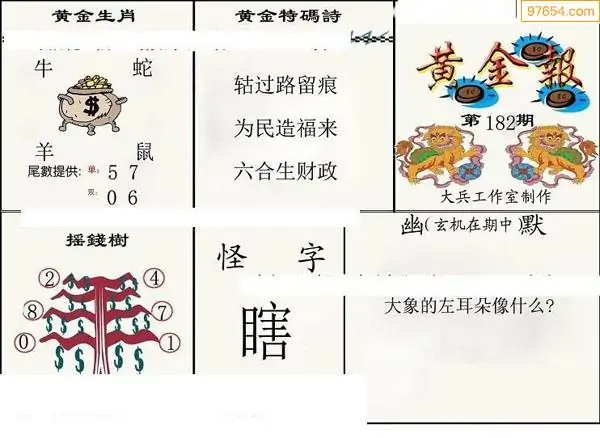 97654.com
黄金生肖
牛 蛇
$
羊 鼠
尾數提供: 单: 5 7
双: 0 6
黄金特碼詩
轱过路留痕
为民造福来
六合生财政
黄金報
第182期
大兵工作室制作
摇錢樹
2 4
8 7
0 1
$ $ $ $ $ $ $ $
怪 字
瞎
幽(玄机在期中)默
大象的左耳朵像什么?